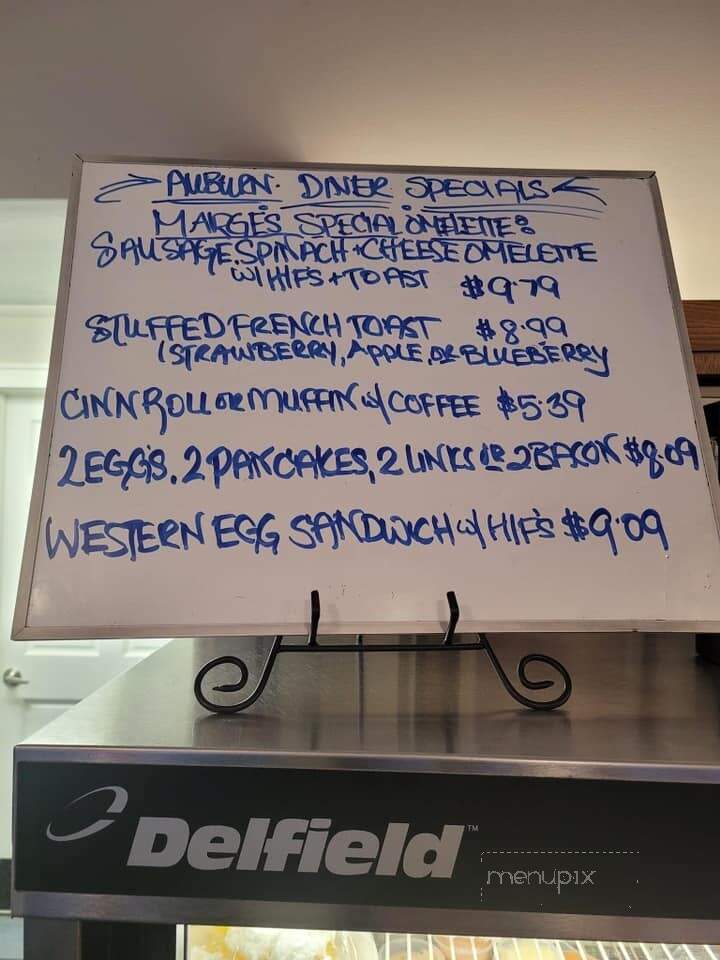 AUBURN DINER SPECIALS
MARGE'S SPECIAL OMELETTE:
SAUSAGE, SPINACH + CHEESE OMELETTE
W/ H/F'S + TOAST $9.79
STUFFED FRENCH TOAST $8.99
(STRAWBERRY, APPLE, OR BLUEBERRY
CINN ROLL OR MUFFIN w/ COFFEE $5.39
2 EGGS, 2 PANCAKES, 2 LINKS OR 2 BACON $8.09
WESTERN EGG SANDWICH w/ H/F'S $9.09
Delfield™
menupix